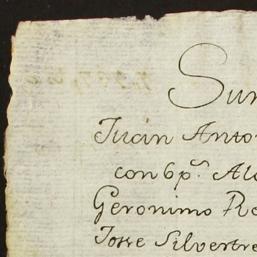 Sum
Juan Anto
con 6 p.s Ale
Geronimo Ro
Jose Silvertre